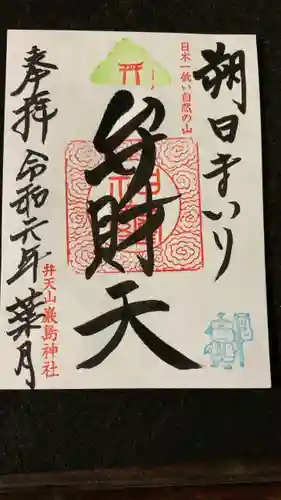 朔日まいり
日本一低い自然の山
弁財天
奉拝
令和六年
葉月
弁天山厳島神社